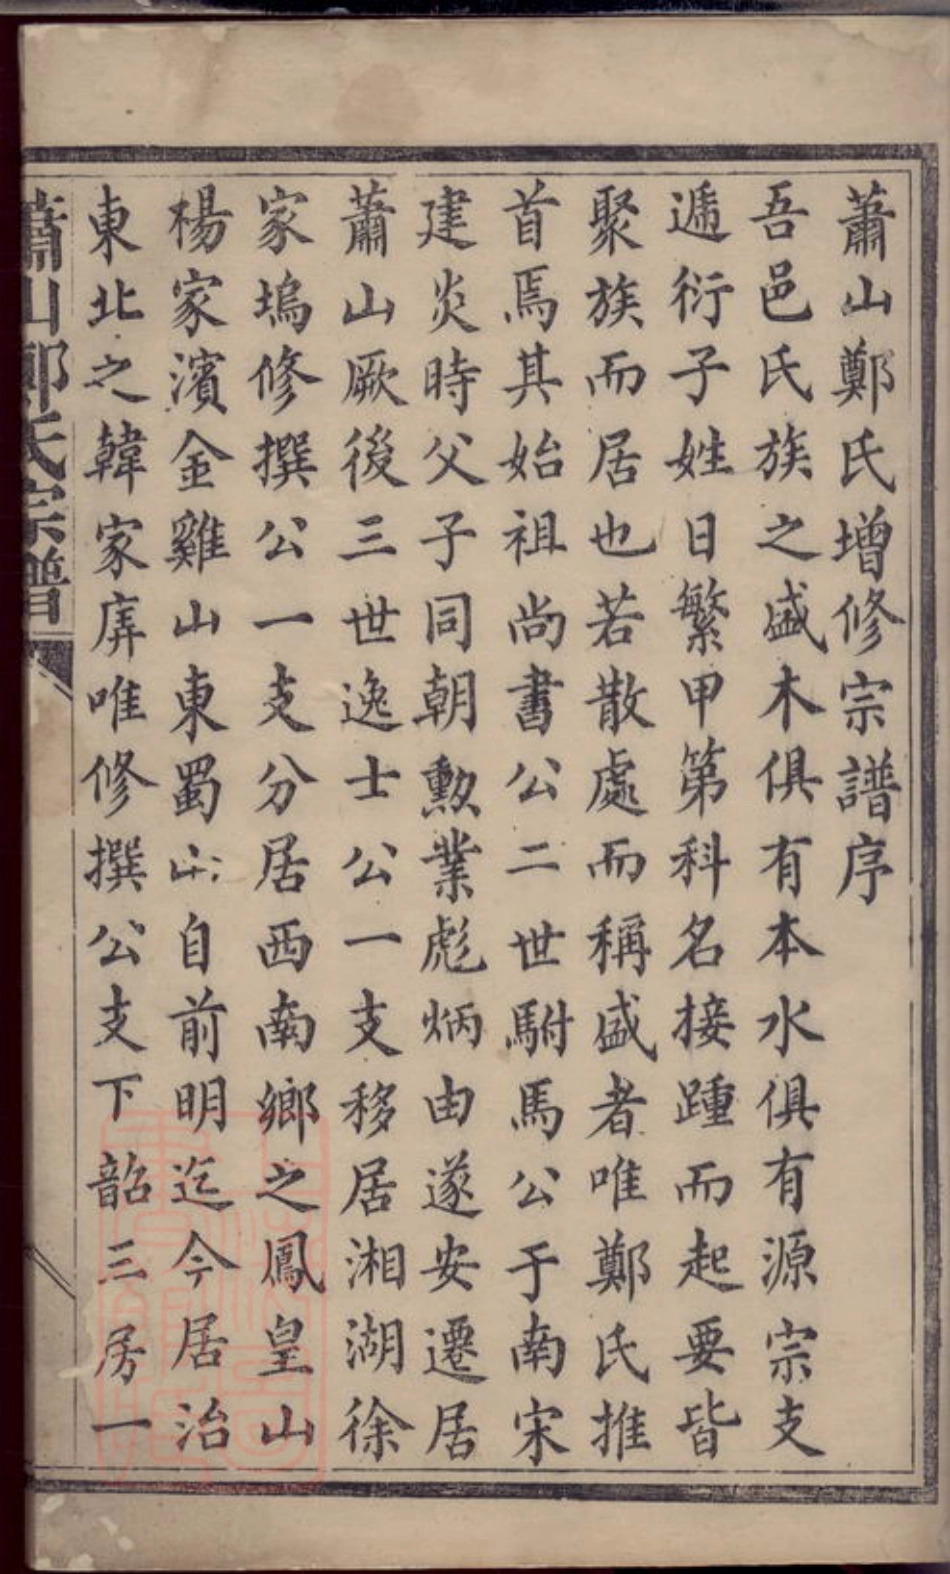 蕭山鄭氏增修宗譜序
吾邑氏族之盛木俱有本水俱有源宗支
遞衍子姓日繁甲第科名接踵而起要皆
聚族而居也若散處而稱盛者唯鄭氏推
首焉其始祖尚書公二世駙馬公于南宋
建炎時父子同朝勲業彪炳由遂安遷居
蕭山厥後三世逸士公一支移居湘湖徐
家塢修撰公一支分居西南鄉之鳳皇山
楊家濱金雞山東蜀山自前明迄今居治
東北之韓家㢈唯修撰公支下韶三房一
蕭山鄭氏宗譜